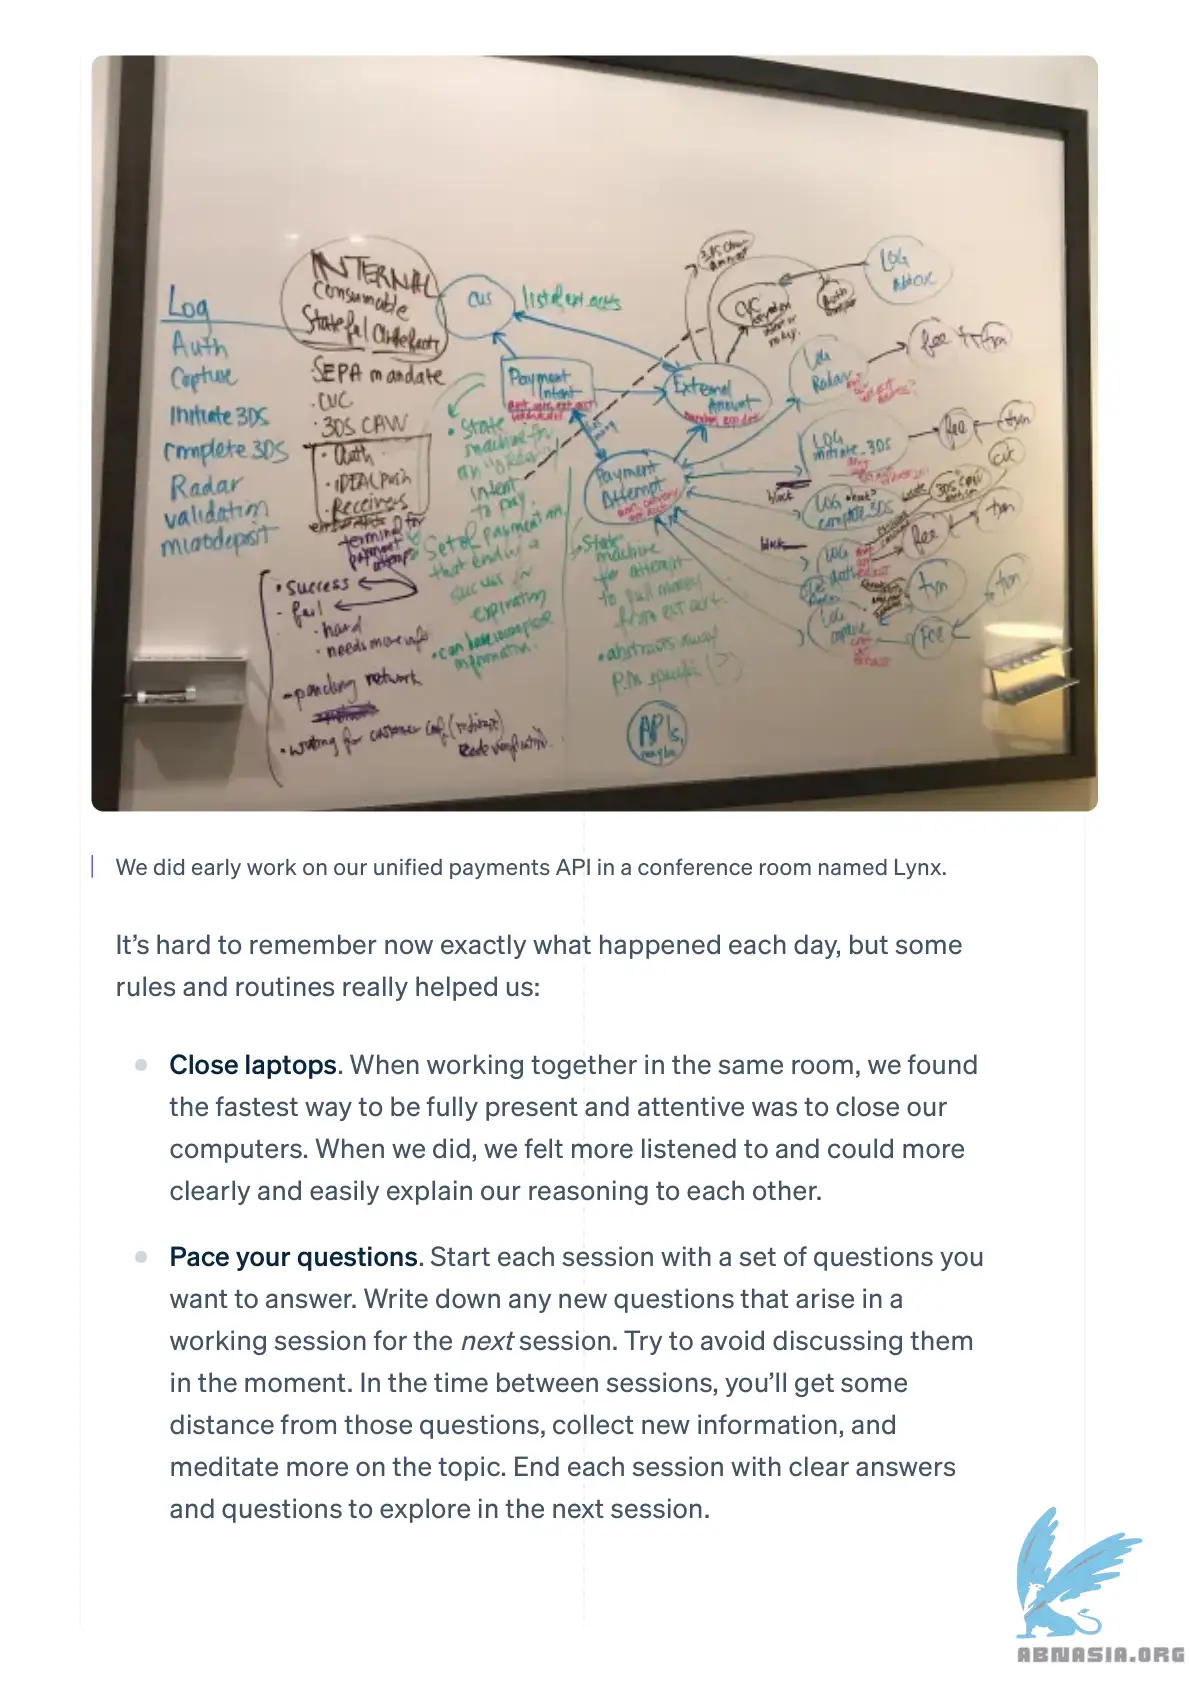 Log
Auth
Capture
Initiate 3DS
complete 3DS
Radar
validation
microdeposit
INTERNAL
Consumable
Stateful
SEPA mandate
· CVC
· 3DS CAVV
· Auth
· iDEAL Push
· Receivers
terminal for
payment
• success
- fail
· hard
· needs more info
- pending network
• waiting for customer (redirect)
cus
list of ext accts
Payment
Intent
• State
machine for
an
Intent
to pay.
Set of payment
that end in a
success or
expiration
• can have incomplete
information.
External
Account
Payment
Attempt
State
machine
for attempt
to pull money
from ext acct.
• abstracts away
P.M specific
APIs,
CVC
LOG
LOG
Radar
fee
txn
LOG
initiate_3DS
fee
txn
block
LOG
complete_3DS
3DS CAVV
cvc
block
LOG
fee
txn
txn
txn
LOG
capture
FEE
We did early work on our unified payments API in a conference room named Lynx.
It’s hard to remember now exactly what happened each day, but some
rules and routines really helped us:
Close laptops. When working together in the same room, we found
the fastest way to be fully present and attentive was to close our
computers. When we did, we felt more listened to and could more
clearly and easily explain our reasoning to each other.
Pace your questions. Start each session with a set of questions you
want to answer. Write down any new questions that arise in a
working session for the next session. Try to avoid discussing them
in the moment. In the time between sessions, you’ll get some
distance from those questions, collect new information, and
meditate more on the topic. End each session with clear answers
and questions to explore in the next session.
ABNASIA.ORG